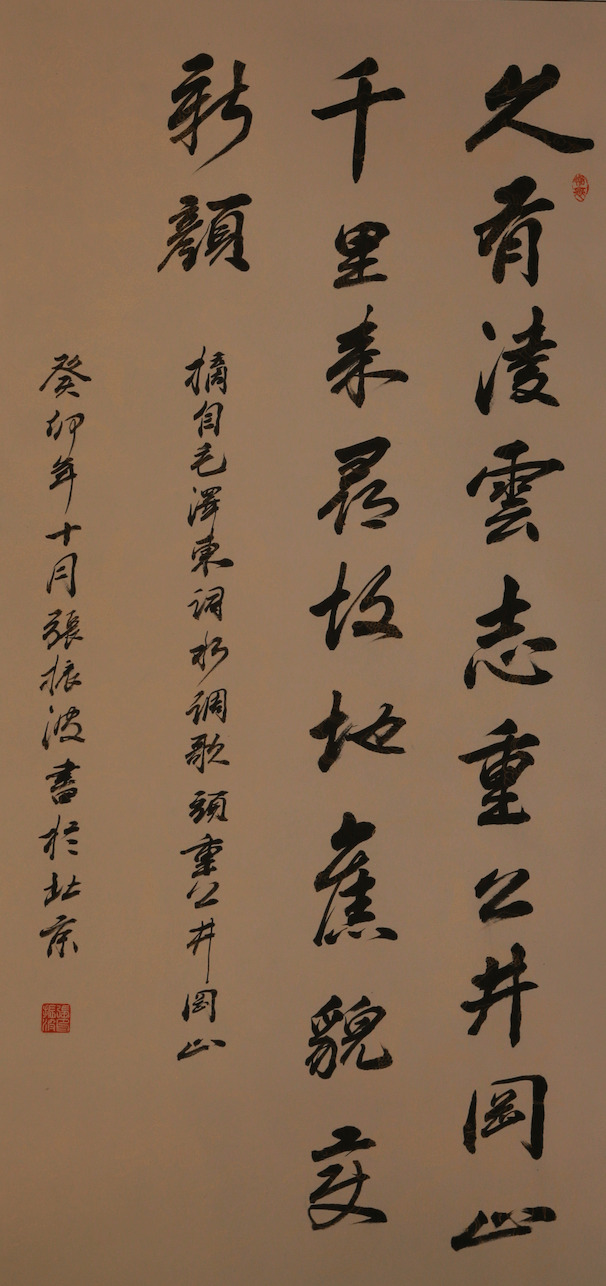 久有淩雲志重上井岡山
千里来尋故地舊貌變
新顏
摘自毛澤東詞水調歌頭重上井岡山
癸卯年十月張振波書於北京